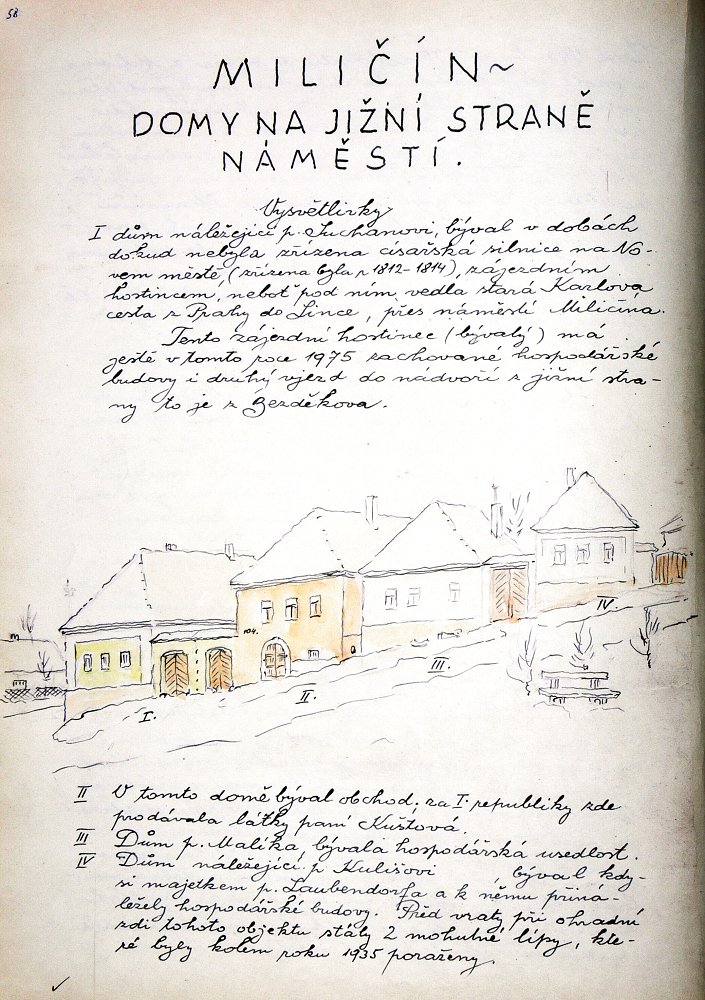 58
MILIČÍN~
DOMY NA JIŽNÍ STRANĚ
NÁMĚSTÍ.
Vysvětlivky
I dům náležející p. Suchanovi, býval v dobách
dokud nebyla zřízena císařská silnice na No-
vém městě (zřízena byla r 1812-1814), zájezdním
hostincem, neboť pod ním vedla stará Karlova
cesta z Prahy do Lince, přes náměstí Miličína.
Tento zájezdní hostinec (bývalý) má
ještě v tomto roce 1975 zachované hospodářské
budovy i druhý vjezd do nádvoří z jižní stra-
ny to je z Bezděkova.
104.
I.
II.
III.
IV.
II V tomto domě býval obchod; za I. republiky zde
prodávala látky paní Kuštová.
III Dům p. Malíka, bývalá hospodářská usedlost.
IV Dům náležející p Kulišovi , býval kdy-
si majetkem p. Laubendorfa a k němu přiná-
ležely hospodářské budovy. Před vraty při ohradní
zdi tohoto objektu stály 2 mohutné lípy, kte-
ré byly kolem roku 1935 poraženy.